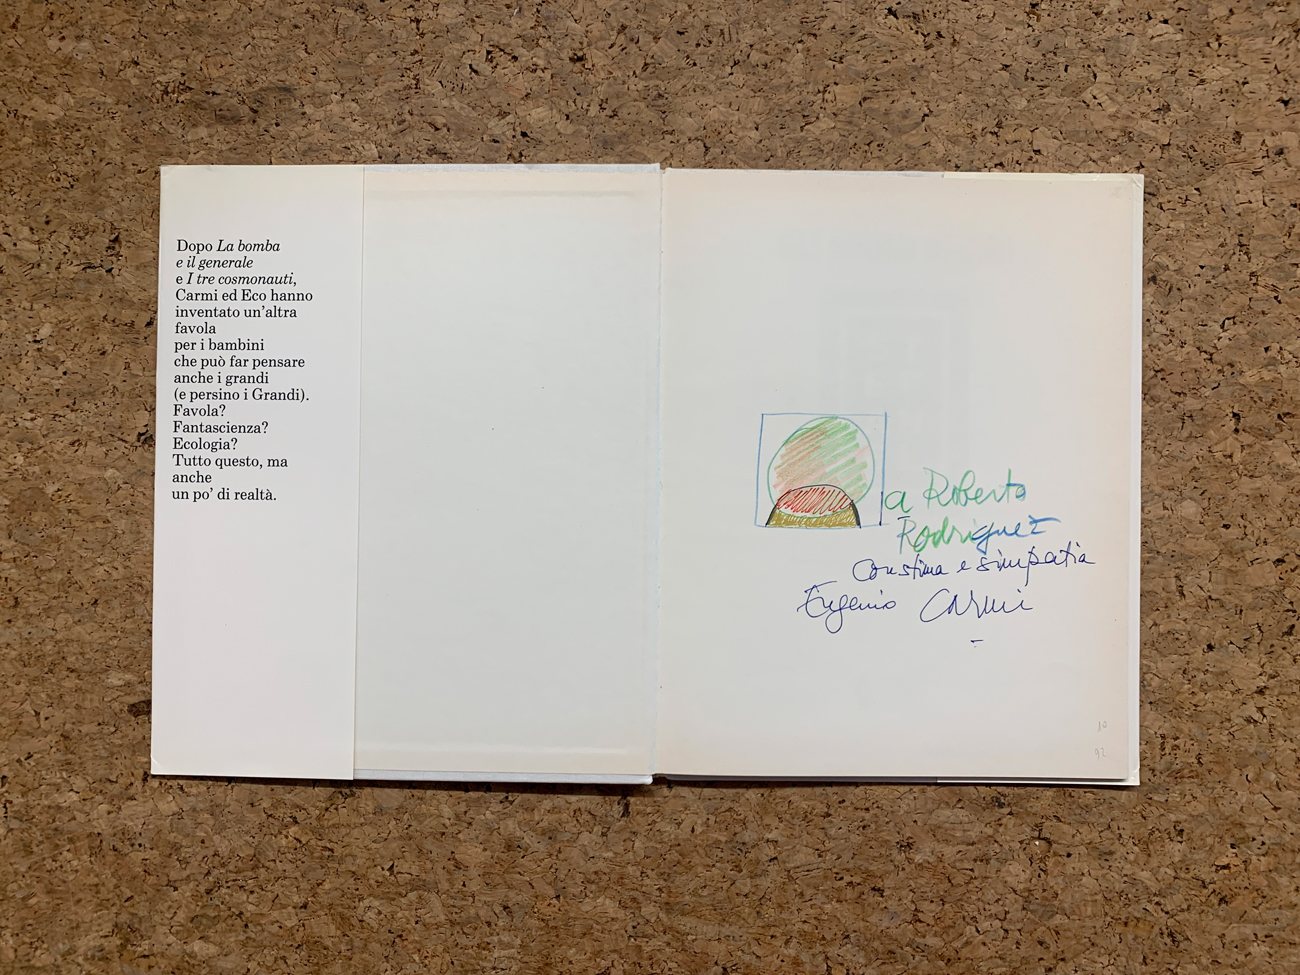 Dopo La bomba
e il generale
e I tre cosmonauti,
Carmi ed Eco hanno
inventato un’altra
favola
per i bambini
che può far pensare
anche i grandi
(e persino i Grandi).
Favola?
Fantascienza?
Ecologia?
Tutto questo, ma
anche
un po’ di realtà.
a Roberto
Rodriguez
con stima e simpatia
Eugenio Carmi
10
92